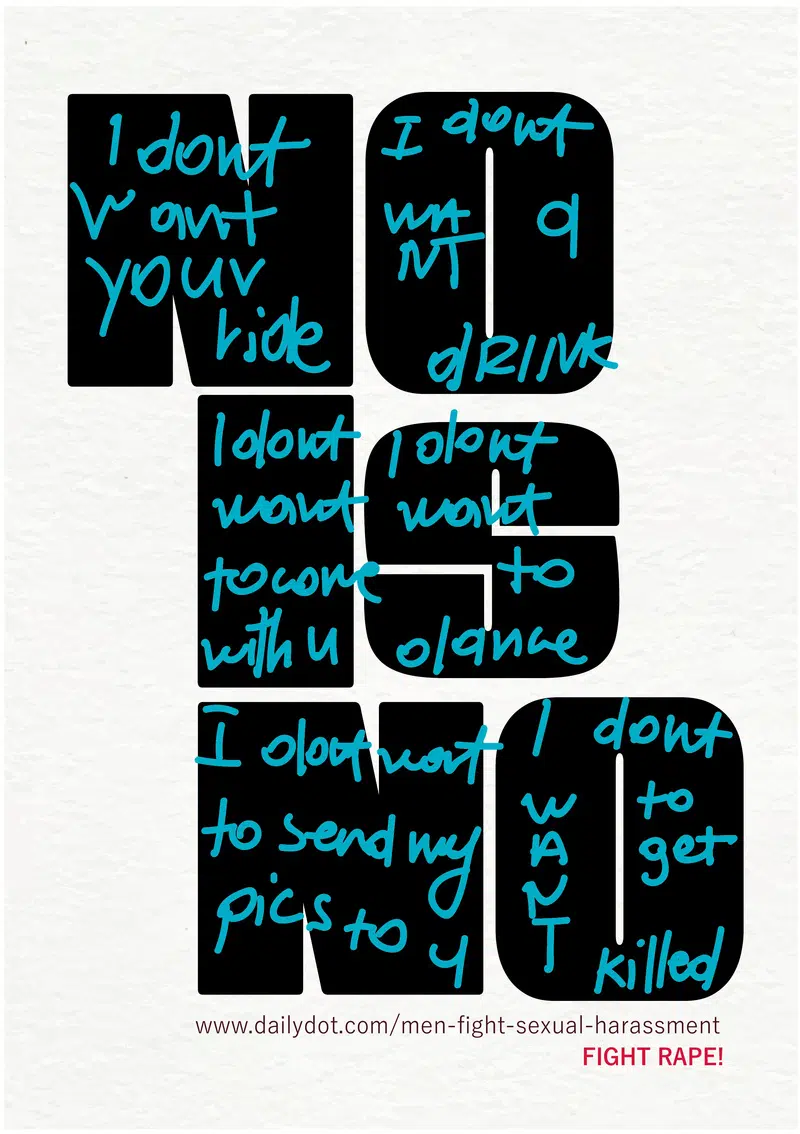 NO
IS
NO
I dont
want
your
ride
I dont
WA
NT
a
dRINK
I dont
want
to come
with u
I dont
want
to
dance
I dont want
to send my
pics to u
I dont
WANT
to
get
killed
www.dailydot.com/men-fight-sexual-harassment
FIGHT RAPE!